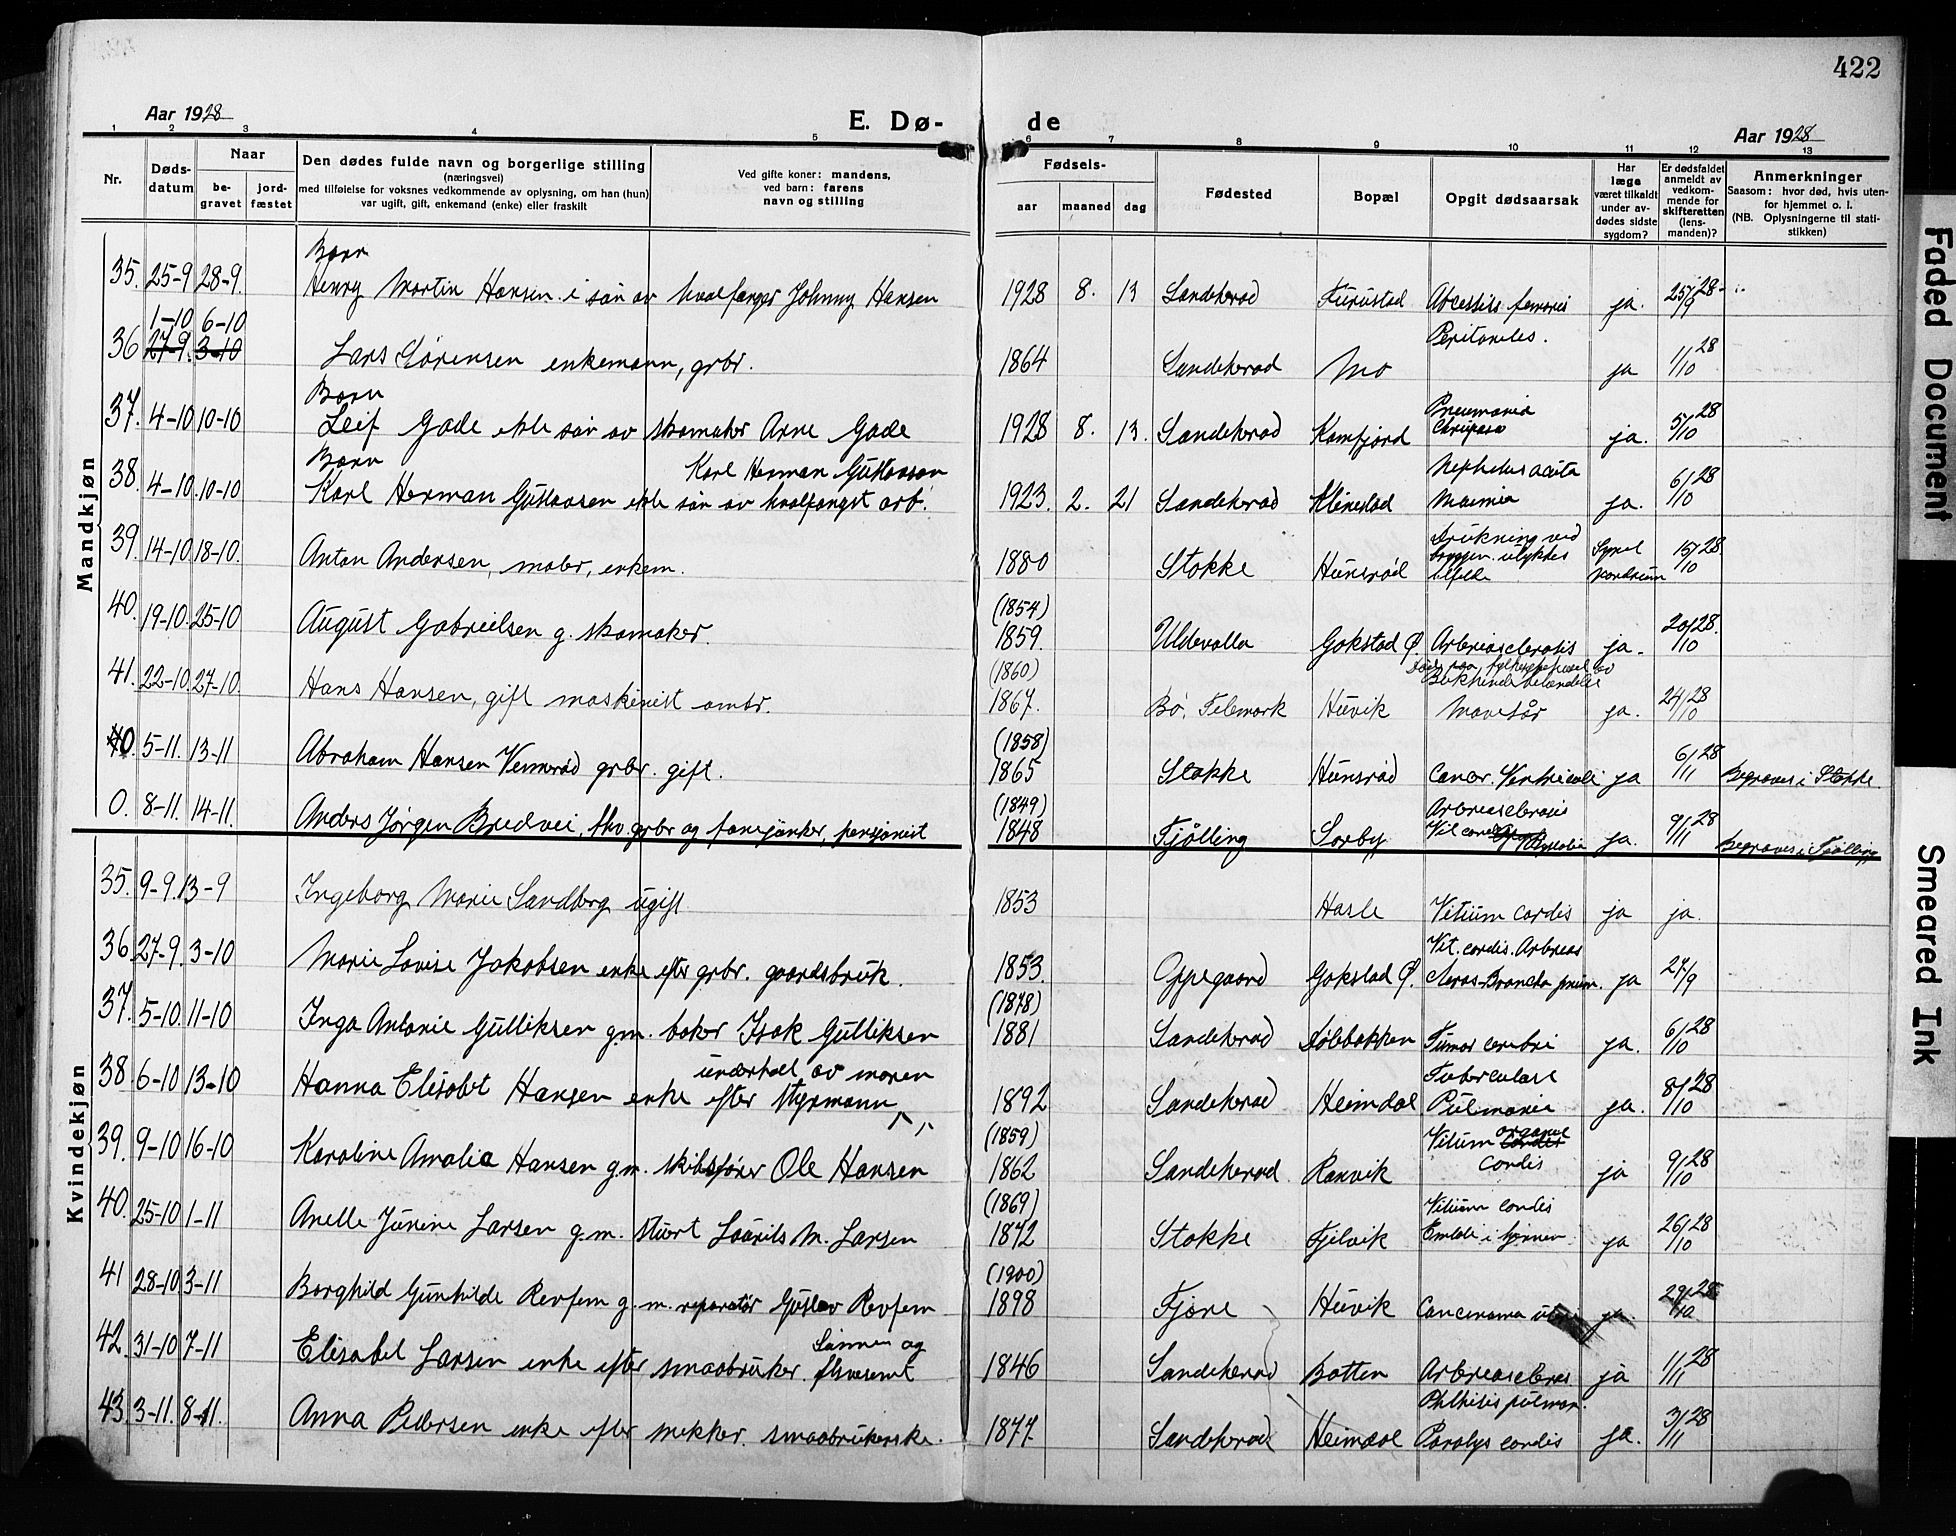 422
Aar 1928
E. Dø- de
Aar 1928
1 2 3 4 5 6 7 8 9 10 11 12 13
Nr.
Døds-
datum
Naar
be-
gravet
jord-
fæstet
Den dødes fulde navn og borgerlige stilling
(næringsvei)
med tilføielse for voksnes vedkommende av oplysning, om han (hun)
var ugift, gift, enkemand (enke) eller fraskilt
Ved gifte koner: mandens,
ved barn: farens
navn og stilling
Fødsels-
aar
maaned
dag
Fødested
Bopæl
Opgit dødsaarsak
Har
læge
været tilkaldt
under av-
dødes sidste
sygdom?
Er dødsfaldet
anmeldt av
vedkom-
mende for
skifteretten
(lens-
manden)?
Anmerkninger
Saasom: hvor død, hvis uten-
for hjemmet o. l.
(NB. Oplysningerne til stati-
stikken)
Mandkjøn
Barn
35. 25-9 28-9. Henry Martin Hansen i søn av hvalfanger Johnny Hansen 1928 8. 13 Sandeherad Furustad Abcessus femoris ja. 25/9 28
1-10 6-10
36 27-9. 3-10 Lars Sørensen enkemann, grbr. 1864 Sandeherad Mo Peritonites. ja 1/10 28
Barn
37. 4-10 10-10 Leif Gade ekte søn av skomaker Arne Gade 1928 8. 13. Sandeherad Kamfjord Pneumonia ja. 5/10 28
Barn Karl Herman Gustavsen
38. 4-10. 10-10 Karl Herman Gustavsen ekte søn av hvalfangst arb. 1923. 2. 21 Sandeherad Klinestad Nephritis acuta ja. 6/10 28
39. 14-10. 18-10. Anton Andersen, maler, enkem. 1880 Stokke Hunsrød Drukning ved bryggen. ulykkes tilfelde Synet 15/10 28
40. 19-10. 25-10 August Gabrielsen g. skomaker. (1854) 1859. Uldevalla Gokstad Ø. Arterioschlerosis ja. 20/10 28.
41. 22-10. 27-10. Hans Hansen, gift maskinist ombr. (1860) 1867. Bø, Telemark Huvik Mavesår ja. 24/10 28
40. 5-11. 13-11 Abraham Hansen Vennerød grbr. gift. (1858) 1865 Stokke Hunsrød Cancr. Ventricoli ja 6/11 28 Begraves i Stokke.
0. 8-11. 14-11. Anders Jørgen Bredvei, fhv. grbr og fanejunker, pensjonist (1849) 1848 Tjølling Sørby Arterioschlerosis ja. 9/11 28 Begraves i Tjølling
Kvindekjøn
35. 9-9. 13-9 Ingeborg Marie Sandberg ugift 1853 Hasle Vitium cordis ja ja.
36. 27-9. 3-10 Marie Lovise Jakobsen enke efter grbr. gaardsbruk. 1853. Oppegaard Gokstad Ø. Vit. cordis. ja 27/9
37. 5-10. 11-10 Inga Antonie Gulliksen g.m. baker Isak Gulliksen (1878) 1881 Sandeherad Dølebakken Tumor cerebri ja. 6/10 28
underholt av moren
38 6-10 13-10 Hanna Elisabet Hansen enke efter styrmann 1892 Sandeherad Heimdal Tuberculose Pulmonis ja. 8/10 28
39. 9-10 16-10 Karoline Amalia Hansen g.m. skibsfører Ole Hansen (1859) 1862 Sandeherad Ranvik Vitium organic cordis ja 9/10 28
40. 25-10 1-11 Anette Junine Larsen g.m. stuert Laurits M. Larsen (1869) 1872 Stokke Fjelvik Vitium cordis Emboli i hjernen ja 26/10 28
41 28-10 3-11 Borghild Gunhilde Revfem g.m. reparatør Gustav Revfem (1900) 1898 Tjøme Huvik Cancinoma ja. 29/10 28
42. 31-10 7-11 Elisabet Larsen enke efter smaabruker. 1846 Sandeherad Botten Arterioscleros ja 1/11 28
43. 3-11. 8-11. Anna Pedersen enke efter snekker. smaabrukerske. 1877. Sandeherad Heimdal Phthisis pulmon. Paralys cordis ja. 3/11 28
Faded Document
Smeared Ink